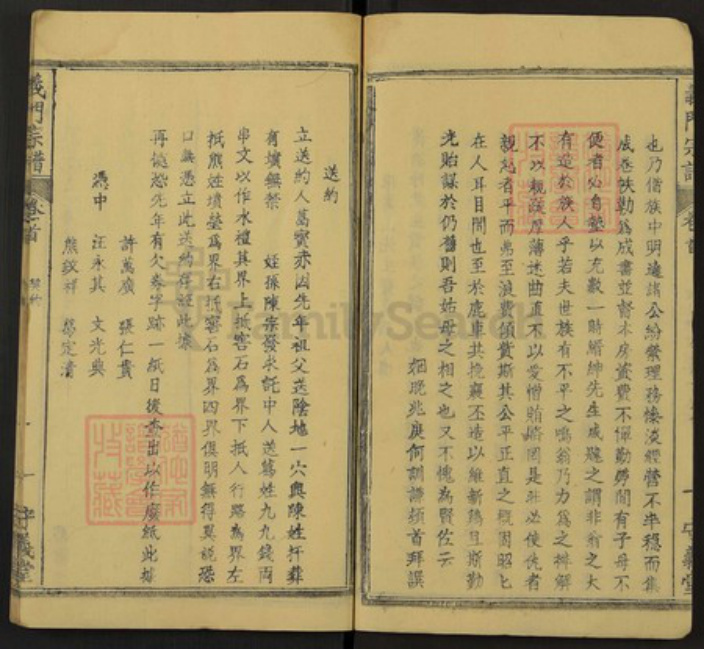 也乃偕族中明達諸公紛繁理務慘淡經營不半穩而集
成卷帙勒為成書並督本房資費不佩勤勞間有子母不
便者必自墊以充數一時縉紳先生咸韙之謂非翁之大
有造於族人乎若夫世族有不平之鳴翁乃力為之排解
不以親疎厚薄迷曲直不以愛憎賄賂罔是非必使仇者
親怨者平而弗至浪費煩費斯其公平正直之槩固昭匕
在人耳目間也至於鹿車共挽襄丕造以維新鴻且斯勤
光貽謀於仍舊則吾姑母之相之也又不愧為賢佐云
姻晚兆庚何訓謙頻首拜譔
義門宗譜
卷首
一
守義堂
送約
立送約人葛賓亦因先年祖父送陰地一穴與陳姓扞葬
有墳無禁 姪孫陳宗發求託中人送葛姓九九錢兩
串文以作水禮其界上抵窖石為界下抵人行路為界左
抵熊姓墳塋為界右抵窖石為界四界俱明無得異說恐
口無憑立此送約存經此據
再批恐先年有欠券字跡一紙日後查出以作廢紙此據
憑中
許萬廣 張仁貴
汪永其 文光典
熊錢祥 葛定清
義門宗譜
卷首
契約
一
守義堂
FamilySearch